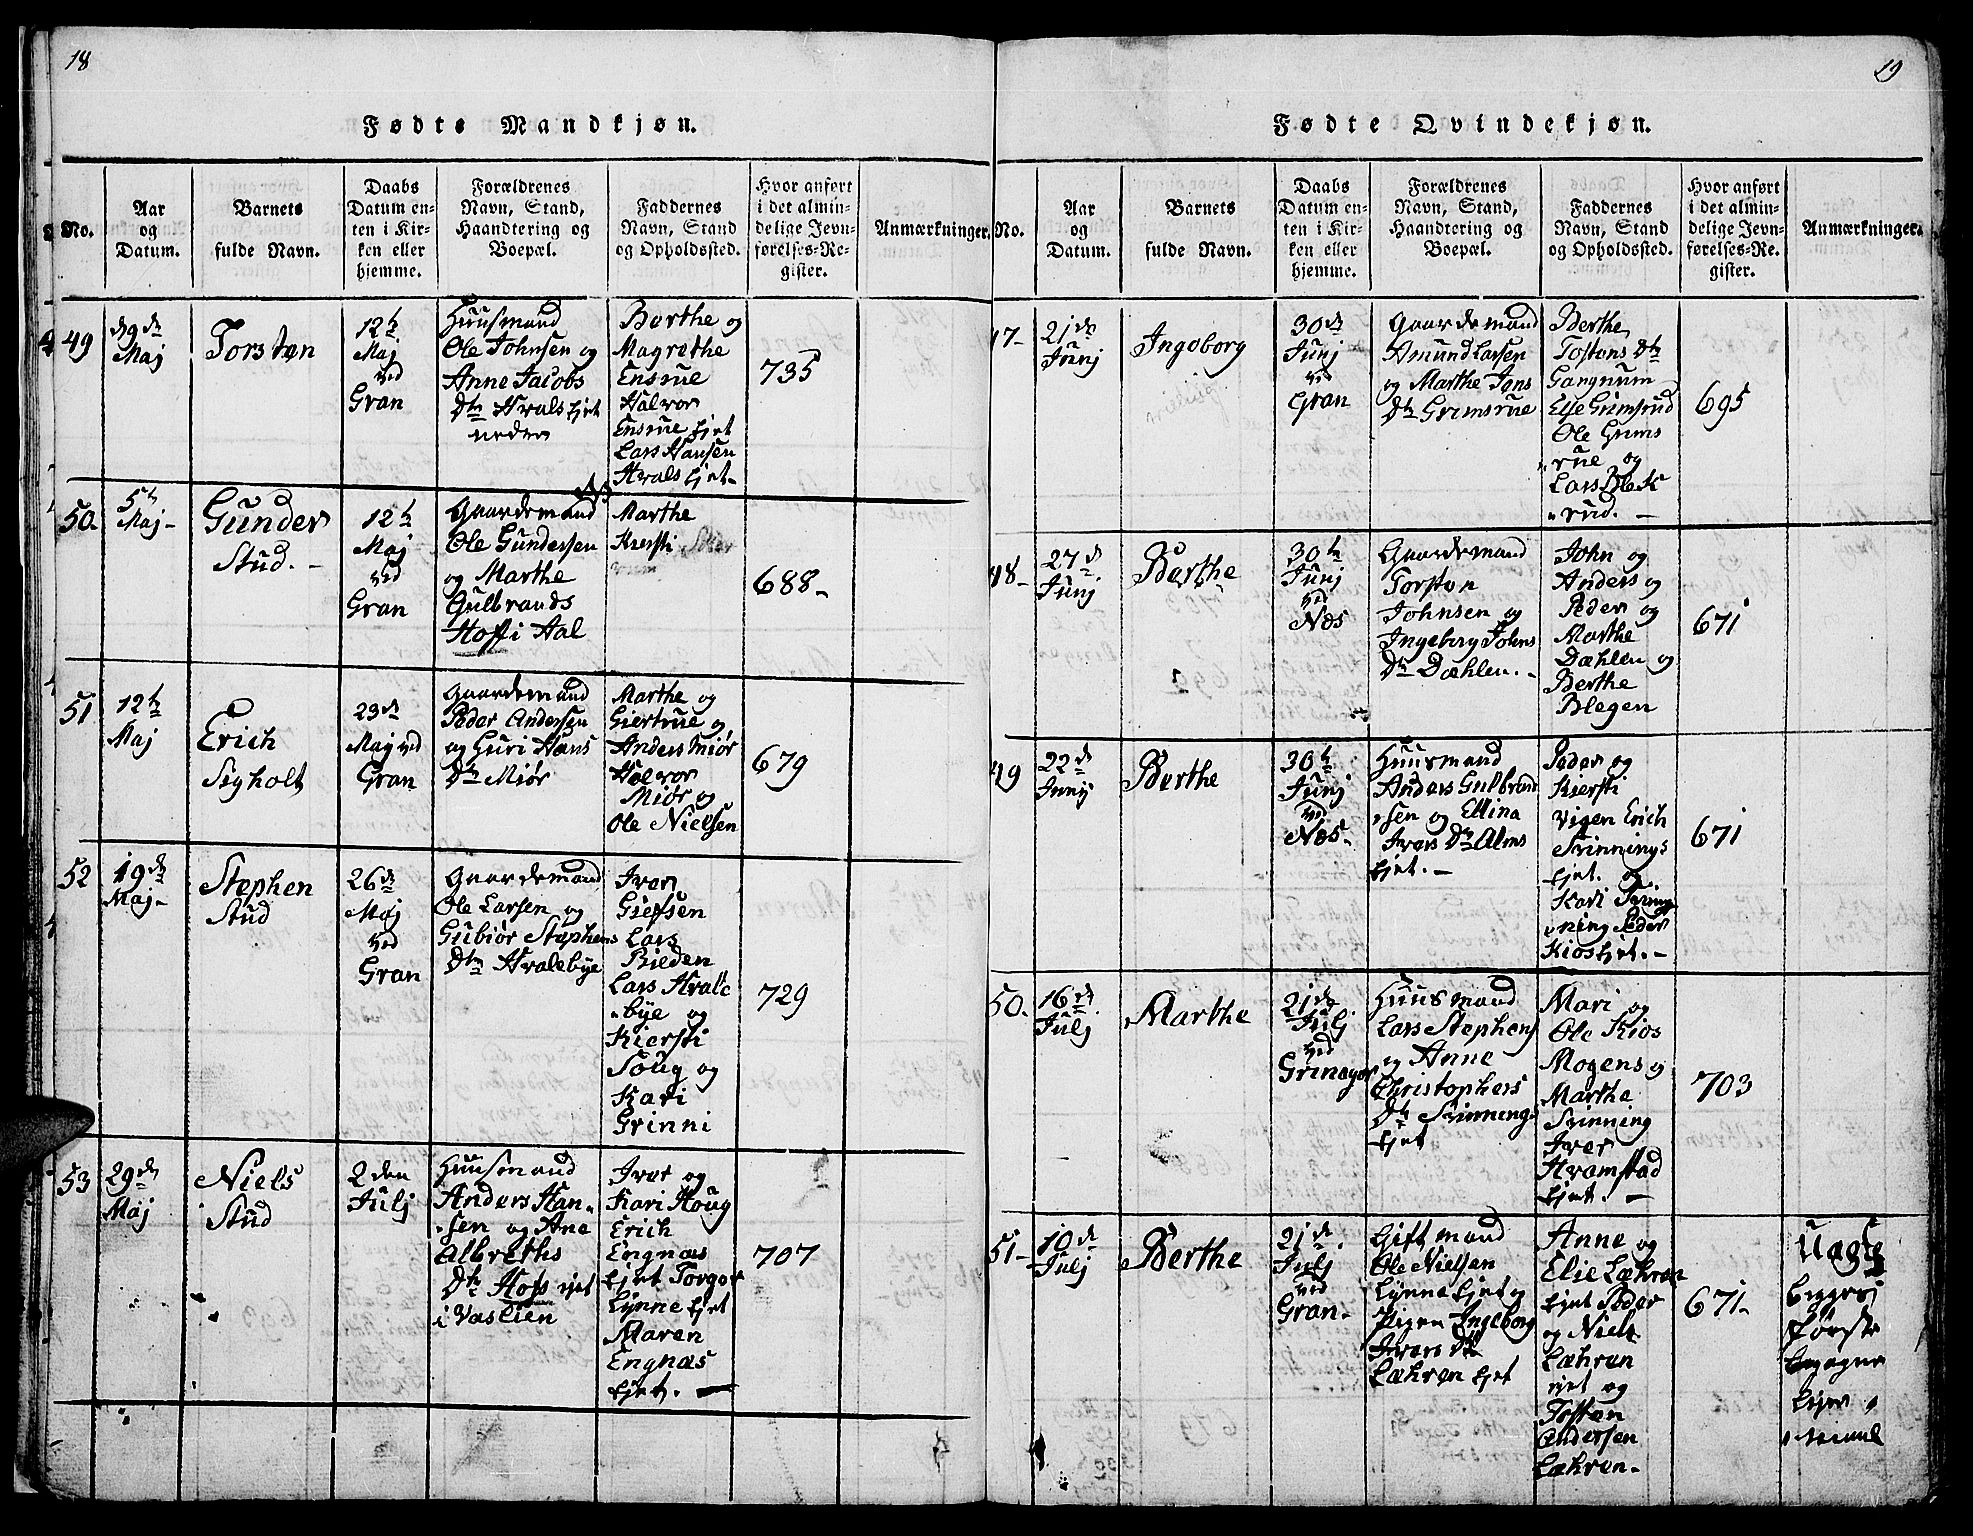 18
Fødte Mandkjøn.
No.
Aar
og
Datum.
Barnets
fulde Navn.
Daabs
Datum en-
ten i Kir-
ken eller
hjemme.
Forældrenes
Navn, Stand,
Haandtering og
Boepæl.
Faddernes
Navn, Stand
og Opholdssted.
Hvor anført
i det almin-
delige Jevn-
førelses-Re-
gister.
Anmærkninger.
49
d 9de
Maj
Torsten
12te
Maj
ved
Gran
Huusmand
Ole Johnsen og
Anne Jacobs
Dtr Hvals Ejet
neden
Berthe og
Magrethe
Ensrue
Halvor
Ensrue Ejet
Lars Hansen
Hvals Ejet-
735
50-
5te
Maj-
Gunder
Stud.-
12te
Maj
ved
Gran
Gaardemand
Ole Gundersen
og Marthe
Gulbrands
Hoff i Aal
Marthe
Kiersti
688-
51
12te
Maj
Erich
Sigholt
23de
Maj ved
Gran
Gaardemand
Peder Andersen
og Guri Hans
Dtr Miør
Marthe og
Giertrue og
Anders Miør
Halvor
Miør og
Ole Nielsen
679
52
19de
Maj-
Stephen
Stud
26de
Maj
ved
Gran
Gaardemand
Ole Larsen og
Gubiør Stephens
Dtr Hvalebye
Iver
Giefsen
Lars
Bilden
Lars Hvale
"bye og
Kiersti
Soug og
Kari
Grinni
729
53
29de
Maj
Niels
Stud
2den
Julj
Huusmand
Anders Han-
"sen og Ane
Albreths
Dtr Hofs ejet
i Vaslien
Ivet og
Kari Houg
Erich
Engnæs
Ejet Torger
Lynne Ejet
Maren
Engnæs
Ejet.-
707
19
Fødte Qvindekjøn.
No.
Aar
og
Datum.
Barnets
fulde Navn.
Daabs
Datum en-
ten i Kir-
ken eller
hjemme.
Forældrenes
Navn, Stand,
Haandtering og
Boepæl.
Faddernes
Navn, Stand
og Opholdssted.
Hvor anført
i det almin-
delige Jevn-
førelses-Re-
gister.
Anmærkninger.
47-
21de
Junj
Ingeborg
30de
Junj
ved
Gran
Gaardemand
Amund Larsen
og Marthe Jons
Dtr Grimsrue
Berthe
Tostens Dtr
Gangnum
Else Grimsrud
Ole Grims
"rue og
Lars Blek
"rud.-
695
48-
27de
Junj
Berthe
30te
Junj
ved
Næs
Gaardemand
Torsten
Johnsen og
Ingeborg Johns
Dtr Dæhlen.-
John og
Anders og
Peder og
Marthe
Dæhlen og
Berthe
Blegen
671
49
22de
Junij
Berthe
30te
Junj
ved
Næs-
Huusmand
Anders Gulbrand
"sen og Ellina
Ivers Dtr Alms
Ejet.-
Peder og
Kiersti
Vigen Erich
Svinnings
Ejet. og
Kari
"ning Peder
Kios Ejet.-
671
50-
16de
Julj
Marthe
21de
Julj
ved
Grinager
Huusmand
Lars Stephens
og Anne
Christophers
Dtr Svinnings
Ejet
Mari og
Ole Kios
Mogens og
Marthe
Svinning
Iver
Hvamstad
Ejet.-
703
51-
10de
Julj
Berthe
21de
Julj
ved
Gran-
Gift mand
Ole Nielsen
Lynne Ejet og
Pigen Ingeborg
Ivers Dtr
Læhren Ejet
Anne og
Elie Læhren
Ejet Peder
og Niels
Læhren
ejet og
Tosten
Andersen
Læhren-
671-
Uægte
Begges
første